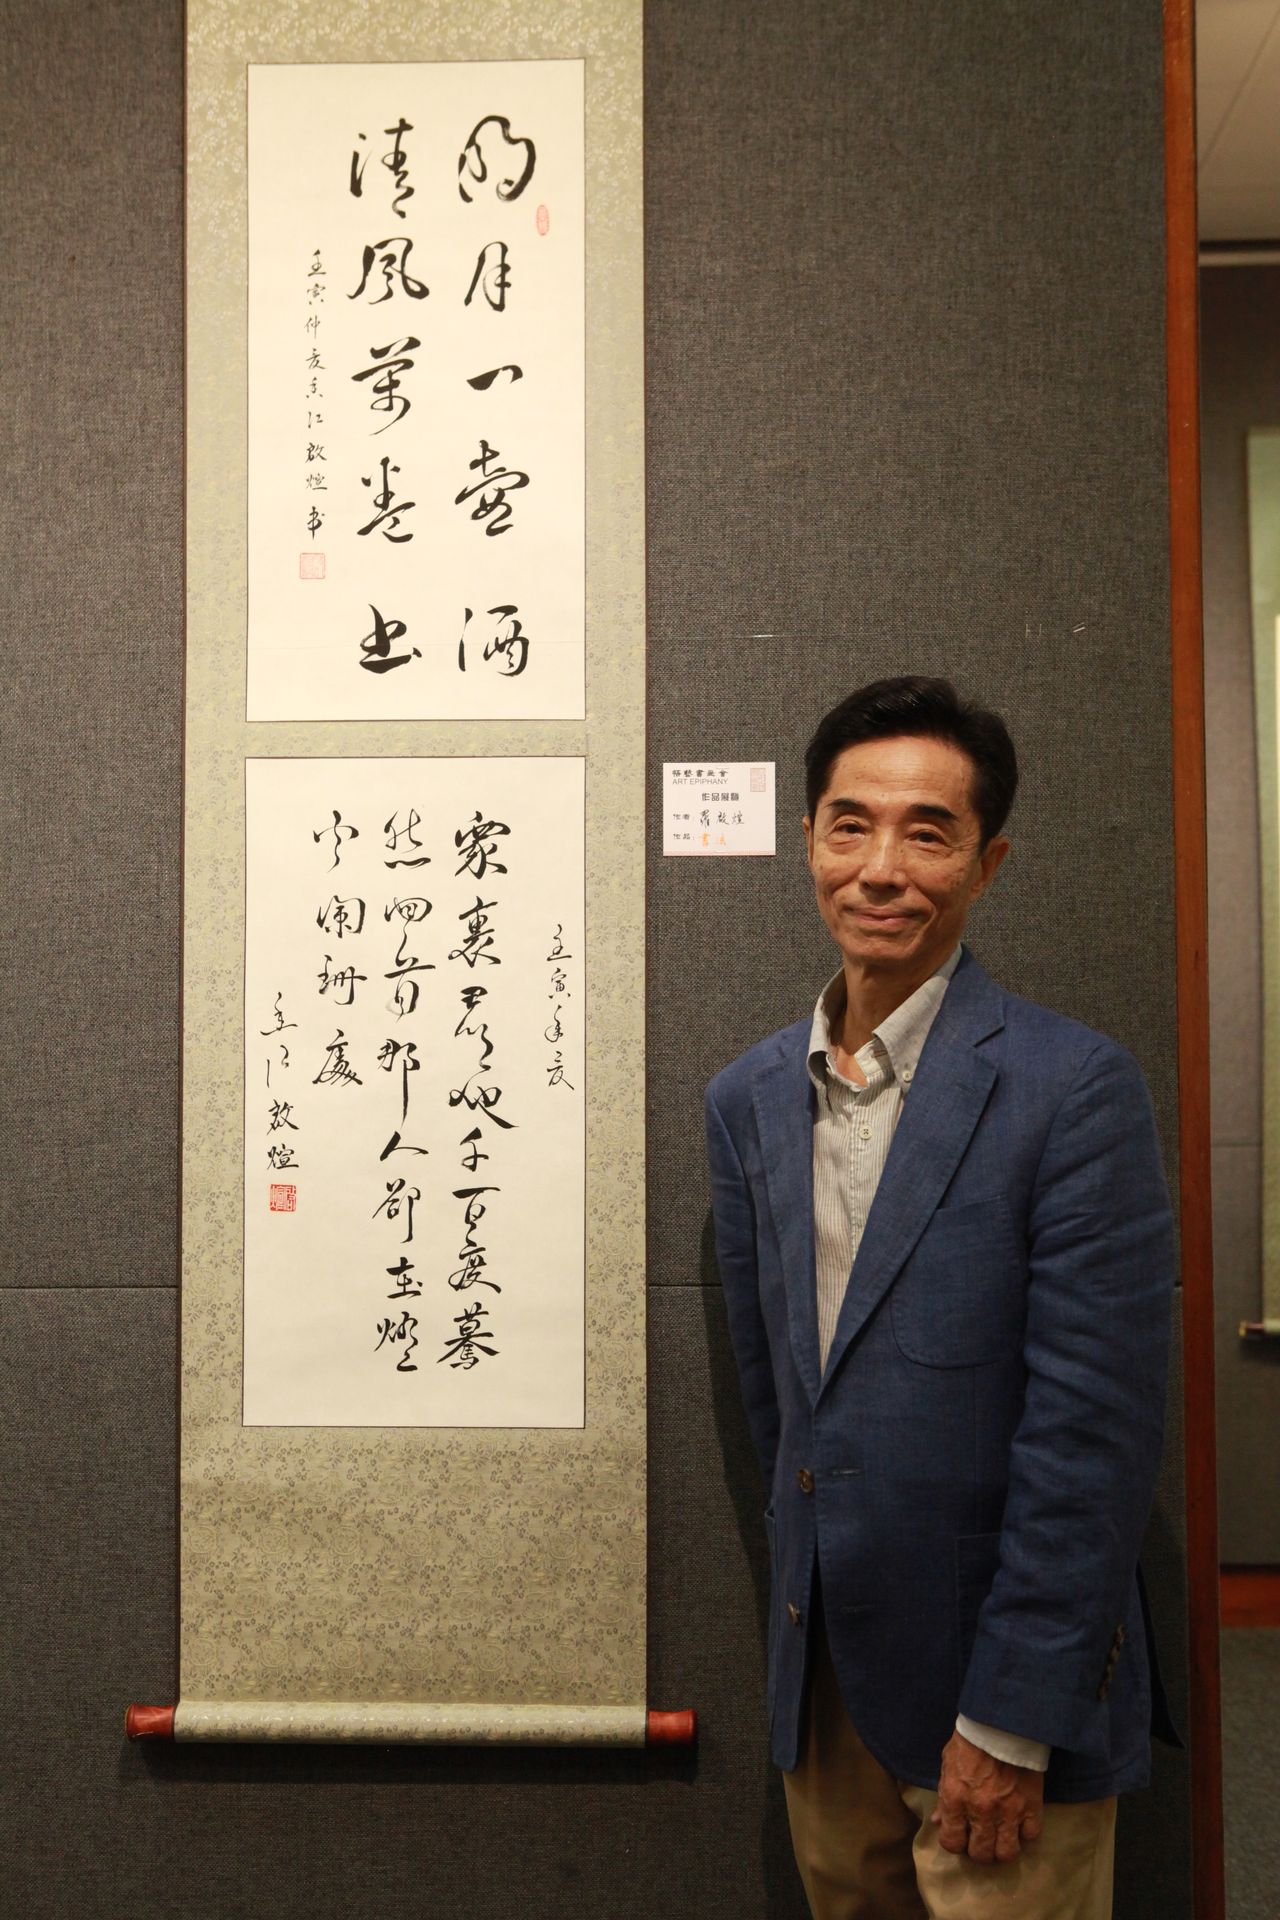 明月一壺酒
清風萬卷書
壬寅仲夏香江啟煊书
壬寅年夏
眾裏尋他千百度驀
然回首那人卻在燈
火闌珊處
香江啟煊
悟藝書畫會
ART EPIPHANY
作品展覽
作者: 羅啟煊
作品: 書法